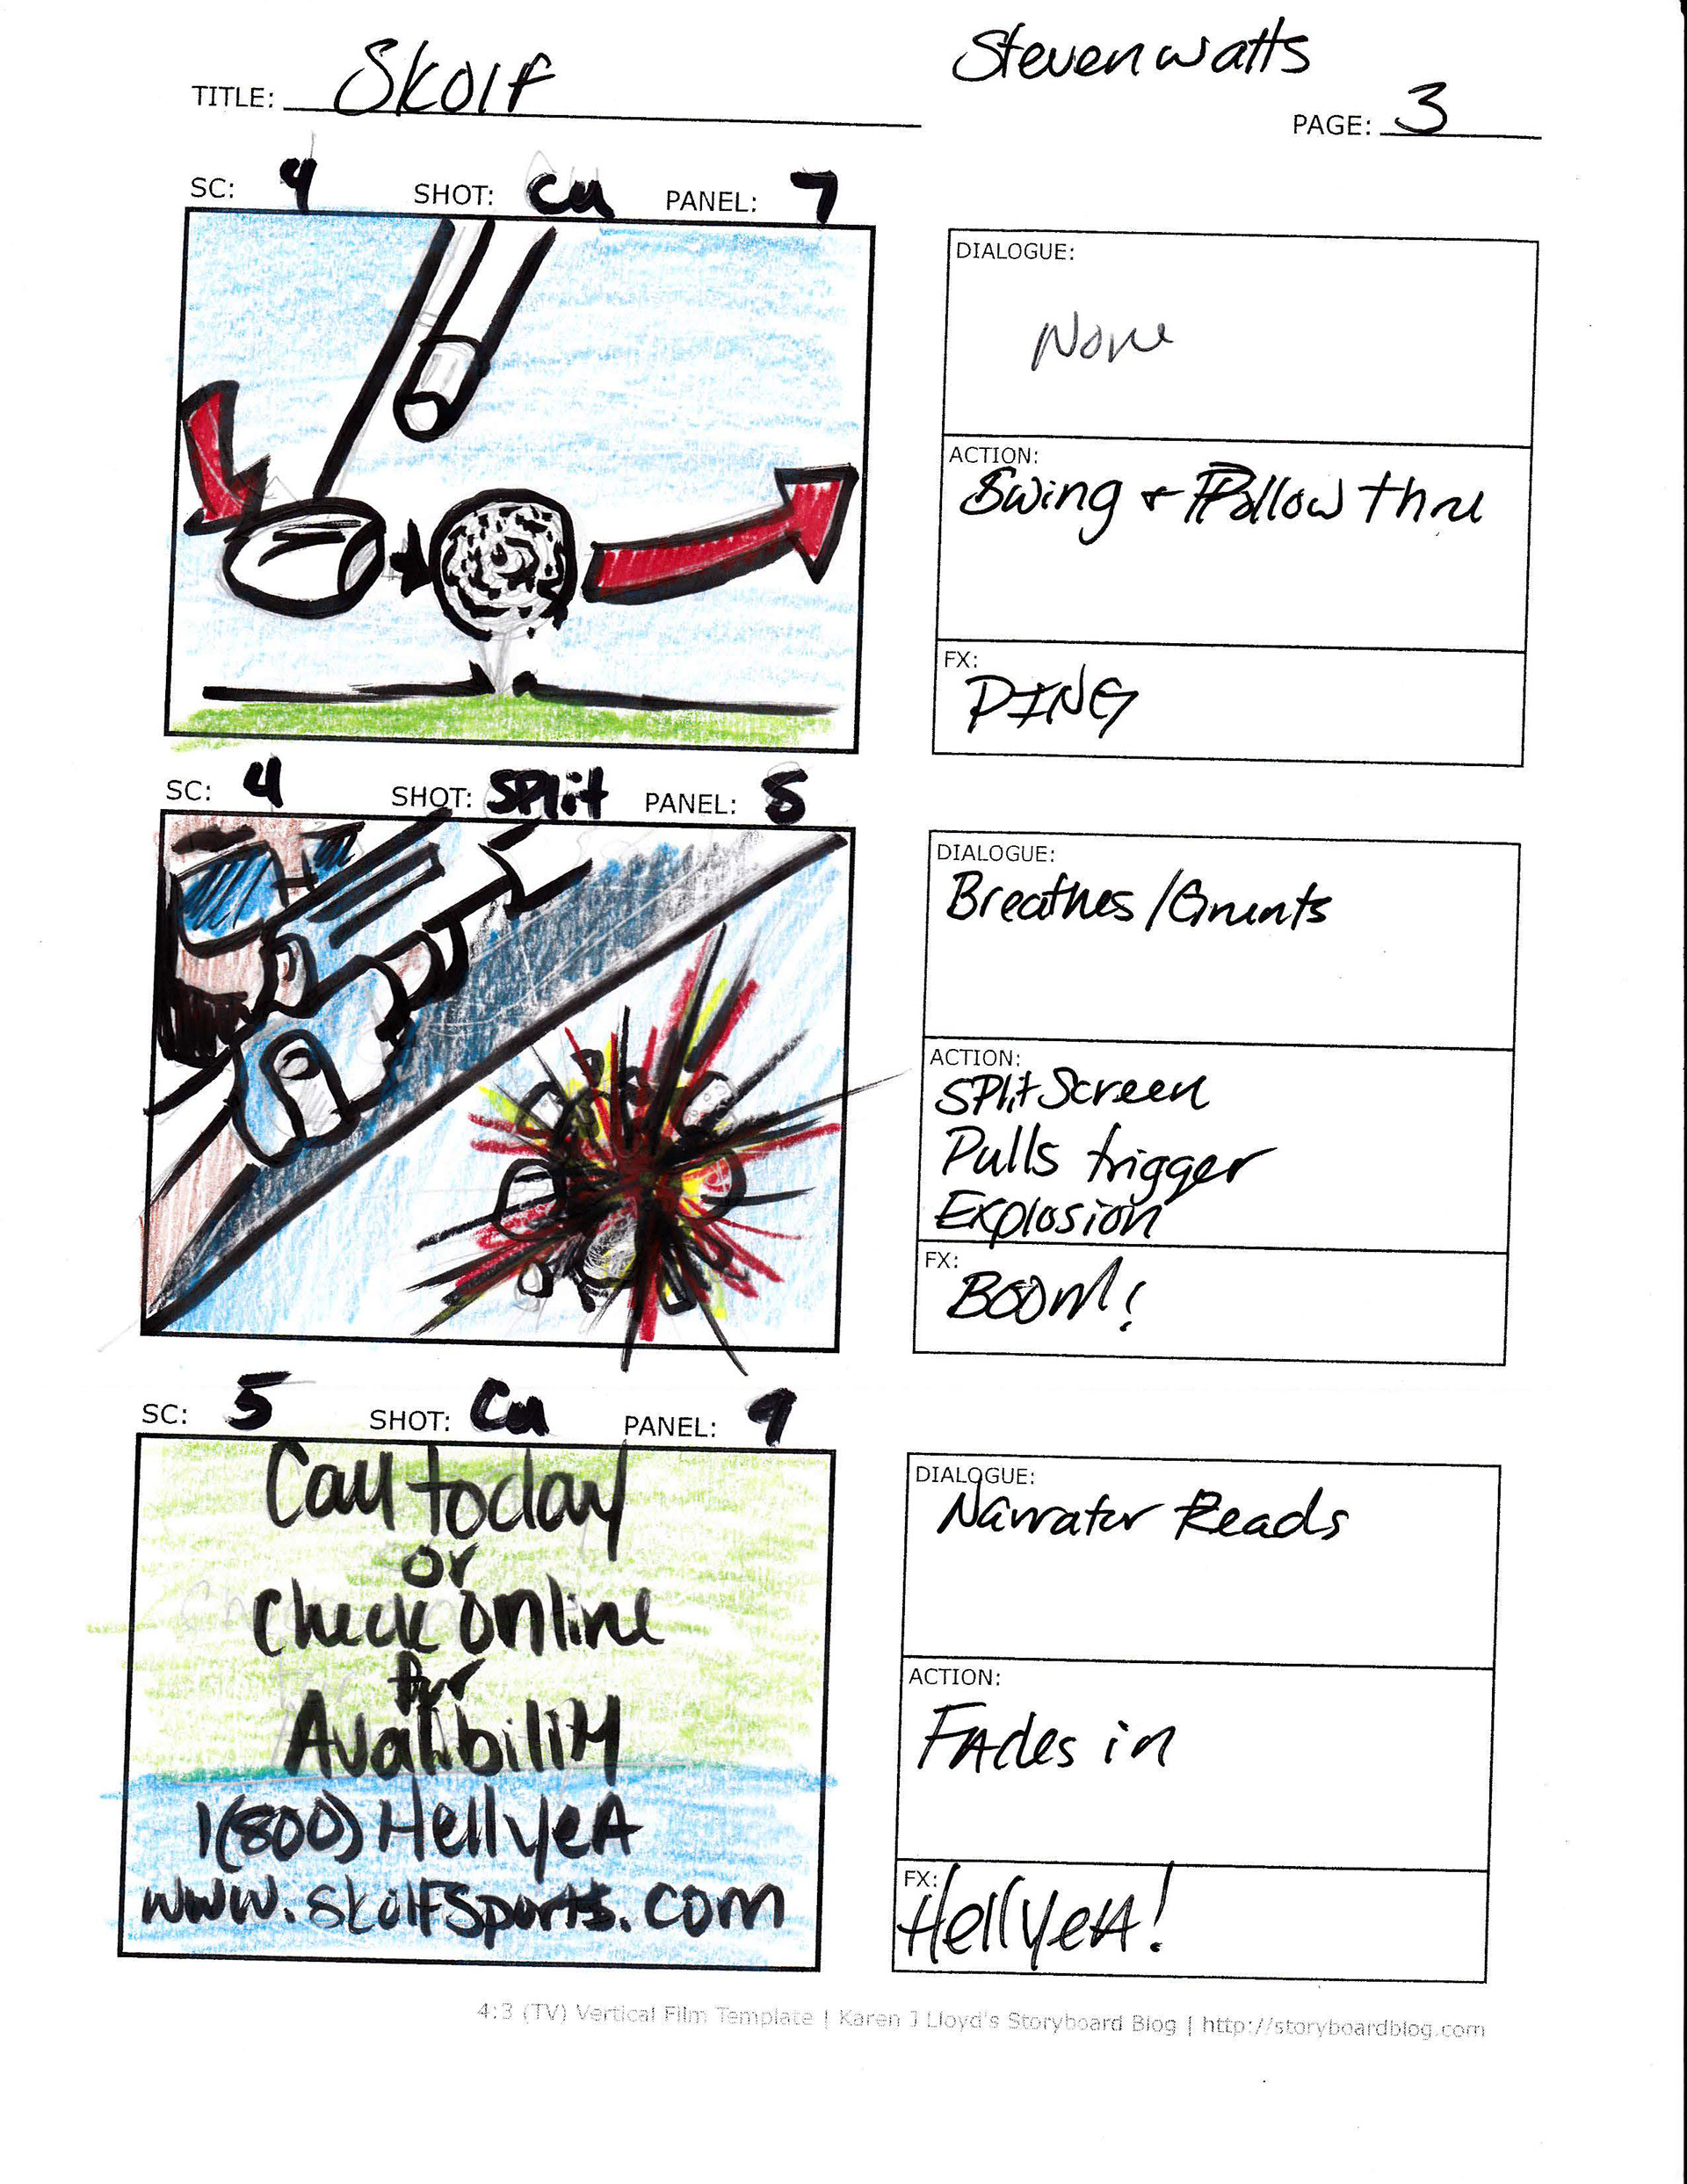 Steven watts
TITLE: Skolf
PAGE: 3
SC: 4 SHOT: Cu PANEL: 7
DIALOGUE:
None
ACTION:
Swing + Follow thru
FX:
PING
SC: 4 SHOT: Split PANEL: 8
DIALOGUE:
Breathes/Grunts
ACTION:
Split Screen
Pulls trigger
Explosion
FX:
BOOM!
SC: 5 SHOT: Cu PANEL: 9
Call today
or
Check online
for
Avalibility
1(800) HellyeA
www.skolfsports.com
DIALOGUE:
Narrator Reads
ACTION:
FAdes in
FX:
HellYeA!
4:3 (TV) Vertical Film Template | Karen J Lloyd's Storyboard Blog | http://storyboardblog.com